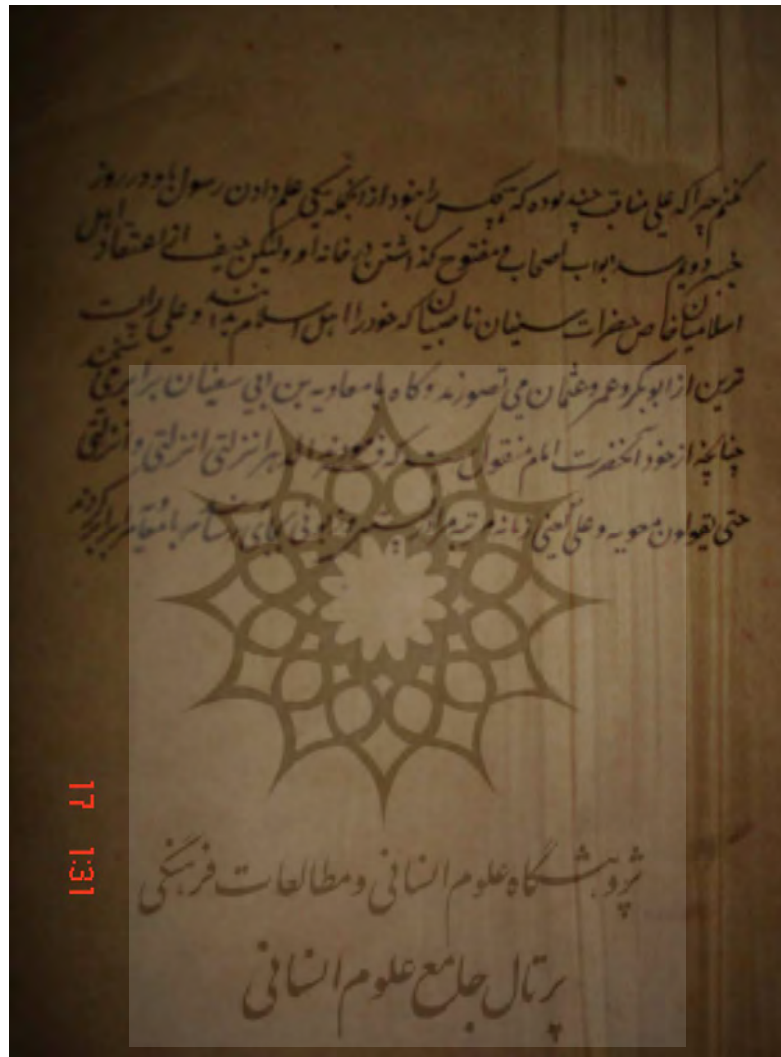 کنم چرا که علی مناقب چند بوده که هیچکس را نبود از آنجمله یکی علم دادن رسول باو در روز
خیبر دویم سد ابواب اصحاب و مفتوح گذاشتن در خانه او ولیکن حیف از اعتقاد اهل
اسلامیان خاص حضرات سنیان ناصبیان که خود را اهل اسلام و علی را
ترین از ابوبکر و عمر و عثمان می تصورند و گاه با معاویه بن ابی سفیان برابری
چنانچه از خود آنحضرت امام منقول است که فرمودند الدهر انزلنی انزلنی و انزلنی
حتی یقولون معویه و علی یعنی زمانه مرتبه مرا برابر کردند
17 1:31
پژوهشگاه علوم انسانی و مطالعات فرهنگی
پرتال جامع علوم انسانی